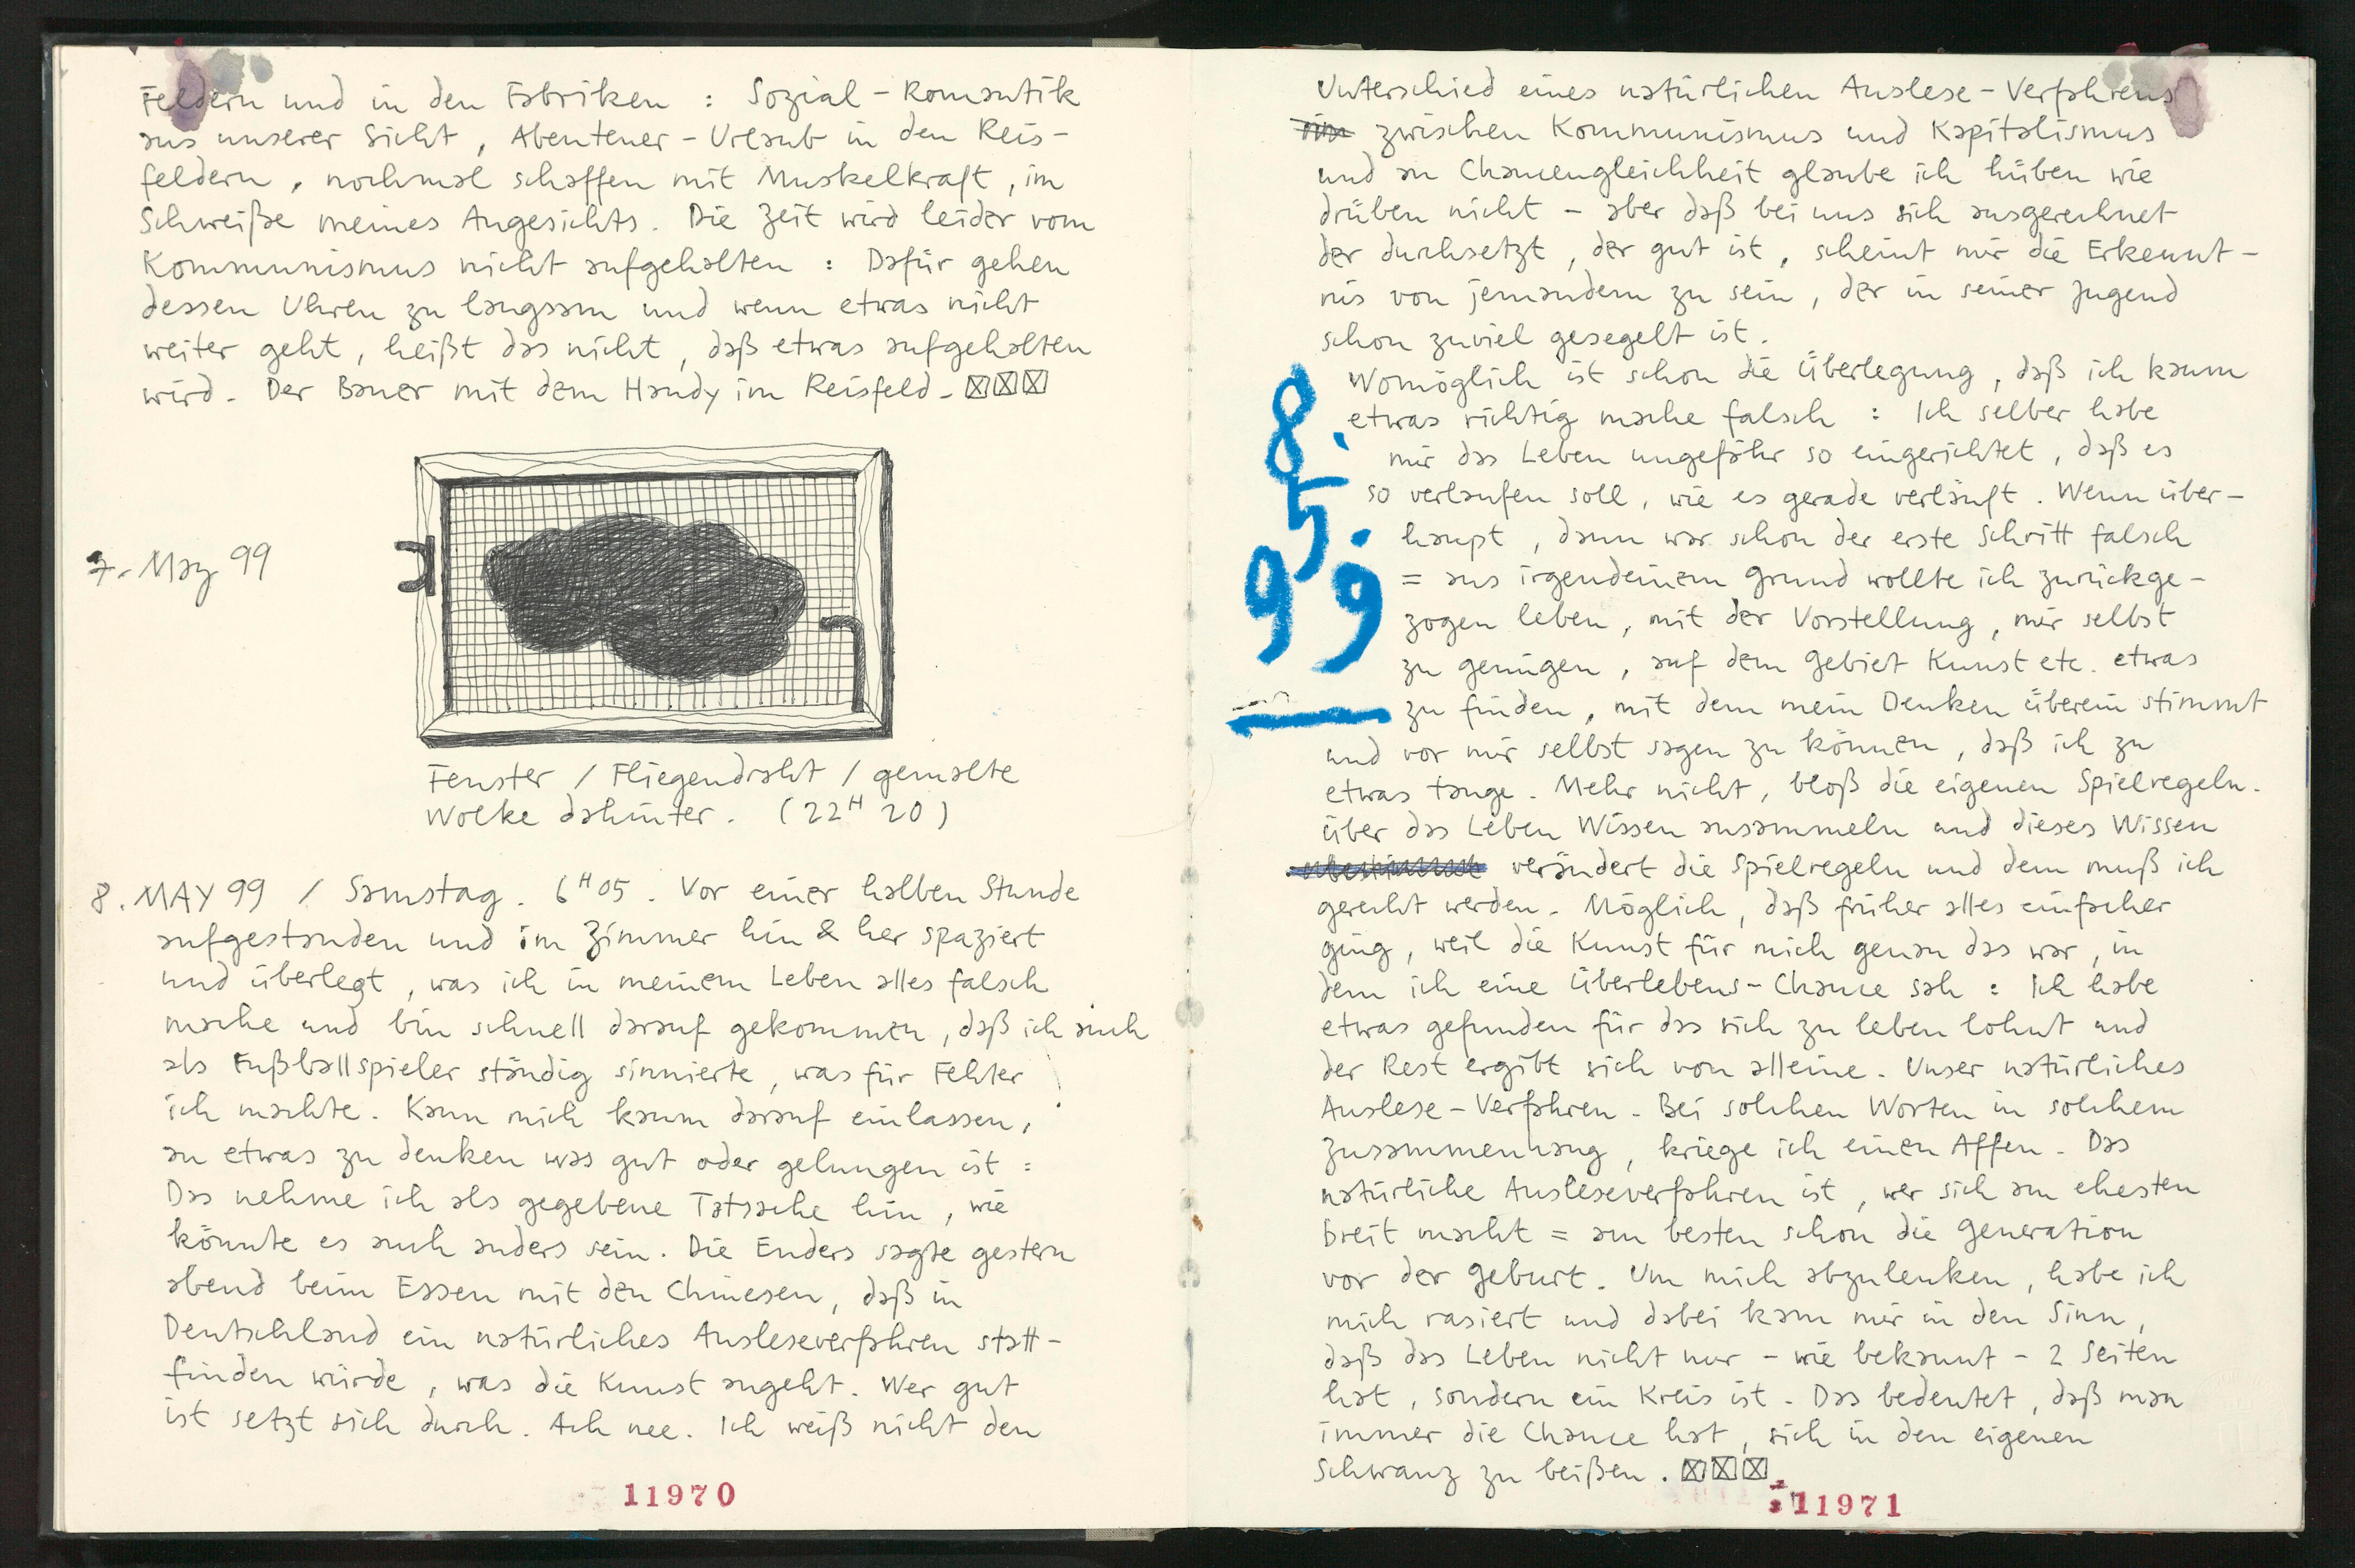 Feldern und in den Fabriken : Sozial-Romantik
aus unserer Sicht, Abenteuer-Urlaub in den Reis-
feldern, nochmal schaffen mit Muskelkraft, im
Schweiße meines Angesichts. Die Zeit wird leider vom
Kommunismus nicht aufgehalten : Dafür gehen
dessen Uhren zu langsam und wenn etwas nicht
weiter geht, heißt das nicht, daß etwas aufgehalten
wird. Der Bauer mit dem Handy im Reisfeld. ☒☒☒
7. May 99
Fenster / Fliegendraht / gemalte
Wolke dahinter. (22H 20)
8. MAY 99 / Samstag. 6H05. Vor einer halben Stunde
aufgestanden und im Zimmer hin & her spaziert
und überlegt, was ich in meinem Leben alles falsch
mache und bin schnell darauf gekommen, daß ich auch
als Fußballspieler ständig sinnierte, was für Fehler
ich machte. Kann mich kaum darauf einlassen,
an etwas zu denken was gut oder gelungen ist :
Das nehme ich als gegebene Tatsache hin, wie
könnte es auch anders sein. Die Enders sagte gestern
abend beim Essen mit den Chinesen, daß in
Deutschland ein natürliches Ausleseverfahren statt-
finden würde, was die Kunst angeht. Wer gut
ist setzt sich durch. Ach nee. Ich weiß nicht den
11970
Unterschied eines natürlichen Auslese-Verfahrens
zwischen Kommunismus und Kapitalismus
und an Chancengleichheit glaube ich hüben wie
drüben nicht – aber daß bei uns sich ausgerechnet
der durchsetzt, der gut ist, scheint mir die Erkennt-
nis von jemandem zu sein, der in seiner Jugend
schon zuviel gesegelt ist.
8.
5.
99
Womöglich ist schon die Überlegung, daß ich kaum
etwas richtig mache falsch : Ich selber habe
mir das Leben ungefähr so eingerichtet, daß es
so verlaufen soll, wie es gerade verläuft. Wenn über-
haupt, dann war schon der erste Schritt falsch
= aus irgendeinem Grund wollte ich zurückge-
zogen leben, mit der Vorstellung, mir selbst
zu genügen, auf dem Gebiet Kunst etc. etwas
zu finden, mit dem mein Denken überein stimmt
und vor mir selbst sagen zu können, daß ich zu
etwas tauge. Mehr nicht, bloß die eigenen Spielregeln.
Über das Leben Wissen ansammeln und dieses Wissen
verändert die Spielregeln und dem muß ich
gerecht werden. Möglich, daß früher alles einfacher
ging, weil die Kunst für mich genau das war, in
dem ich eine Überlebens-Chance sah : Ich habe
etwas gefunden für das sich zu leben lohnt und
der Rest ergibt sich von alleine. Unser natürliches
Auslese-Verfahren. Bei solchen Worten in solchem
Zusammenhang, kriege ich einen Affen. Das
natürliche Ausleseverfahren ist, wer sich am ehesten
breit macht = am besten schon die Generation
vor der Geburt. Um mich abzulenken, habe ich
mich rasiert und dabei kam mir in den Sinn,
daß das Leben nicht nur – wie bekannt – 2 Seiten
hat, sondern ein Kreis ist. Das bedeutet, daß man
immer die Chance hat, sich in den eigenen
Schwanz zu beißen. ☒☒☒
11971